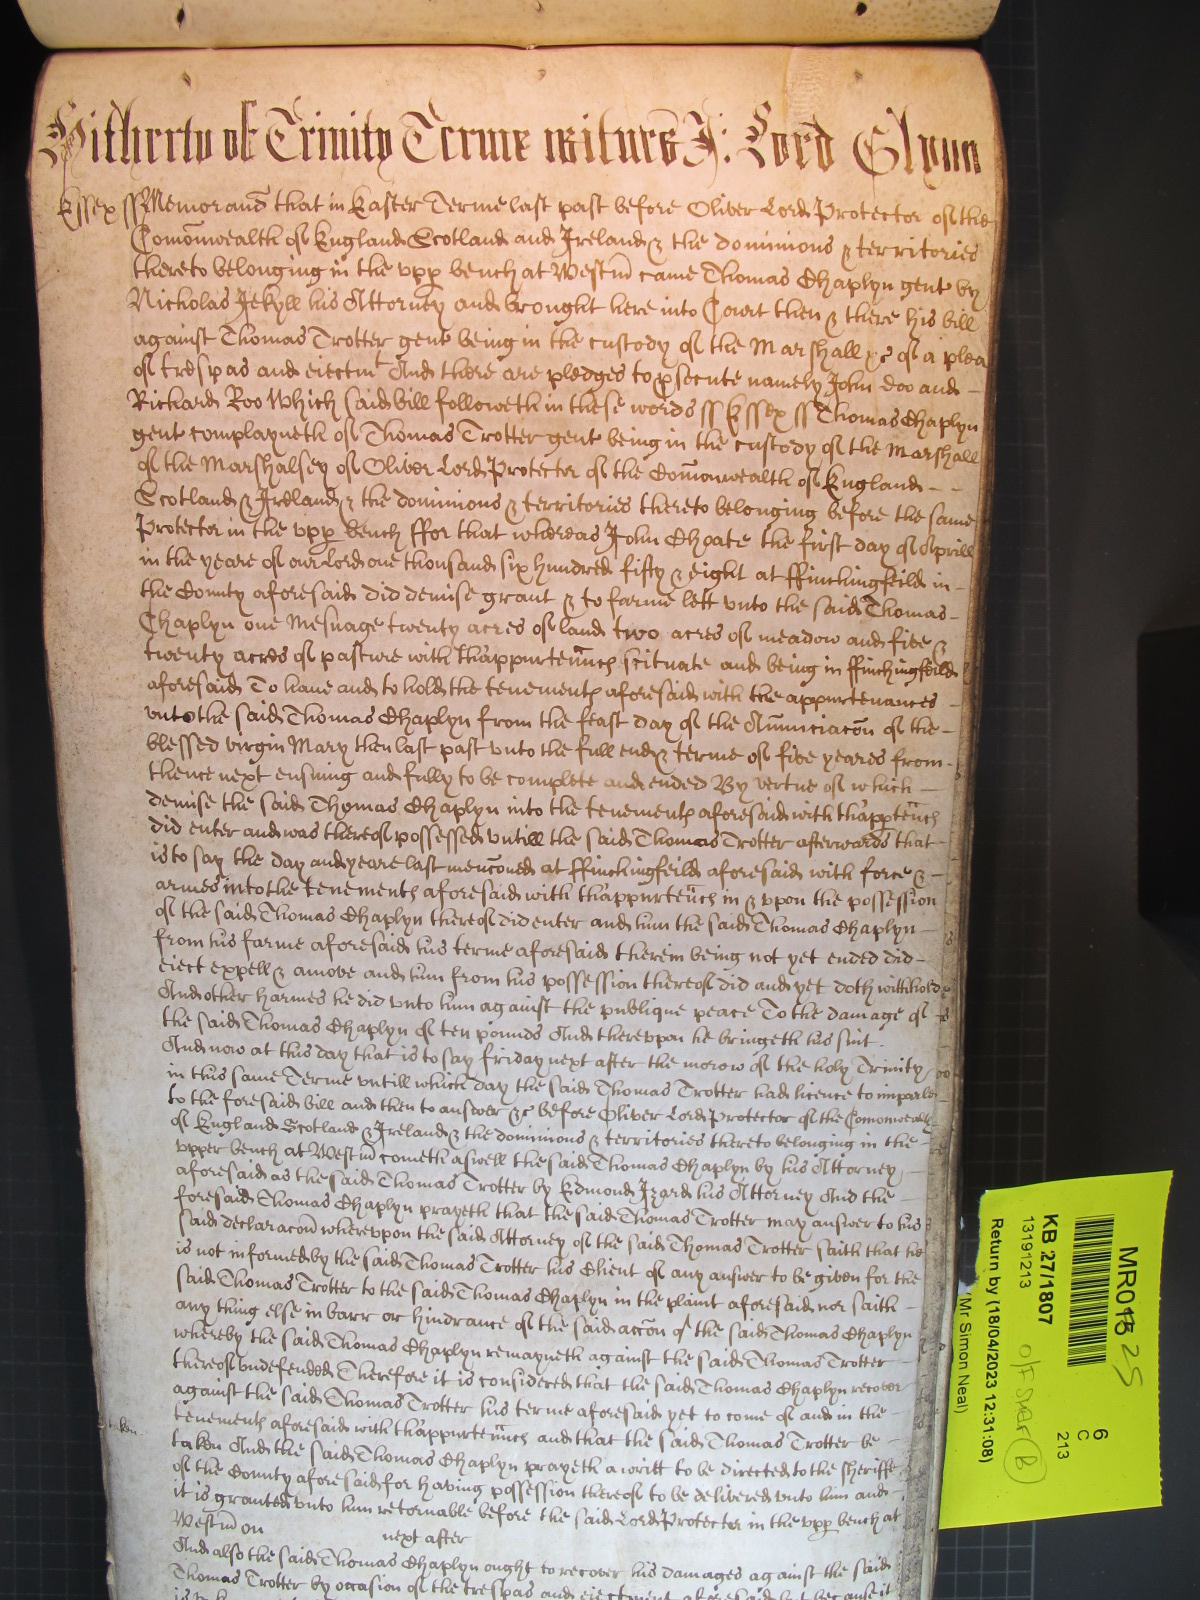 Hitherto of Trinity Terme witnes J: Lord Glynn
Essex ss Memorand that in Easter Terme last past before Oliver Lord Protector of the
Comonwealth of England Scotland and Ireland & the dominions & territories
thereto belonging in the vpp bench at Westm came Thomas Chaplyn gent by
Nicholas Jekyll his Attorney and brought here into Court then & there his bill
against Thomas Trotter gent being in the custody of the Marshall &c of a plea
of trespas and eiectmt And there are pledges to psecute namely John Doo and
Richard Roo Which said bill followeth in these words ss Essex ss Thomas Chaplyn
gent complayneth of Thomas Trotter gent being in the custody of the Marshall
of the Marshalsey of Oliver Lord Protector of the Comonwealth of England
Scotland & Ireland & the dominions & territories thereto belonging before the same
Protector in the vpp bench ffor that whereas John Choate the first day of Aprill
in the yeare of our Lord one thousand six hundred fifty & eight at ffinchingfeild in
the County aforesaid did demise grant & to farme lett vnto the said Thomas
Chaplyn one Mesuage twenty acres of land two acres of meadow and five &
twenty acres of pasture with thappurtenncs scituate and being in ffinchingfeild
aforesaid To have and to hold the tenements aforesaid with the appurtenances
vnto the said Thomas Chaplyn from the feast day of the Anunciacon of the
blessed virgin Mary then last past vnto the full end & terme of five yeares from
thence next ensuing and fully to be complete and ended By vertue of which
demise the said Thomas Chaplyn into the tenements aforesaid with thapptencs
did enter and was thereof possessed vntill the said Thomas Trotter afterwards that
is to say the day and yeare last menconed at ffinchingfeild aforesaid with force &
armes into the tenements aforesaid with thappurtencs in & vpon the possession
of the said Thomas Chaplyn thereof did enter and him the said Thomas Chaplyn
from his farme aforesaid his terme aforesaid therein being not yet ended did
eiect expell & amove and him from his possession thereof did and yet doth withhold
And other harmes he did vnto him against the publique peace To the damage of
the said Thomas Chaplyn of ten pounds And therevpon he bringeth his suit
And now at this day that is to say friday next after the morow of the holy Trinity
in this same Terme vntill which day the said Thomas Trotter had licence to imparle
to the foresaid bill and then to answer &c before Oliver Lord Protector of the Comonwealth
of England Scotland & Ireland & the dominions & territories thereto belonging in the
vpper bench at Westm cometh aswell the said Thomas Chaplyn by his Attorney
aforesaid as the said Thomas Trotter by Edmond Izard his Attorney And the
foresaid Thomas Chaplyn prayeth that the said Thomas Trotter may answer to his
said declaracon wherevpon the said Attorney of the said Thomas Trotter saith that he
is not informed by the said Thomas Trotter his Client of any answer to be given for the
said Thomas Trotter to the said Thomas Chaplyn in the plaint aforesaid nor saith
any thing else in barr or hindrance of the said accon of the said Thomas Chaplyn
whereby the said Thomas Chaplyn remayneth against the said Thomas Trotter
thereof vndefended Therefore it is considered that the said Thomas Chaplyn recover
against the said Thomas Trotter his terme aforesaid yet to come of and in the
tenements aforesaid with thappurtenncs and that the said Thomas Trotter be
taken And the said Thomas Chaplyn prayeth a writt to be directed to the sheriffe
of the County aforesaid for having possession thereof to be delivered vnto him and
it is granted vnto him retornable before the said Lord Protector in the vpp bench at
Westm on next after
And also the said Thomas Chaplyn ought to recover his damages against the said
Thomas Trotter by occasion of the trespas and eiectment aforesaid but because it
MR016 25
6
C
213
KB 27/1807
13191213
Return by (18/04/2023 12:31:08)
(Mr Simon Neal)